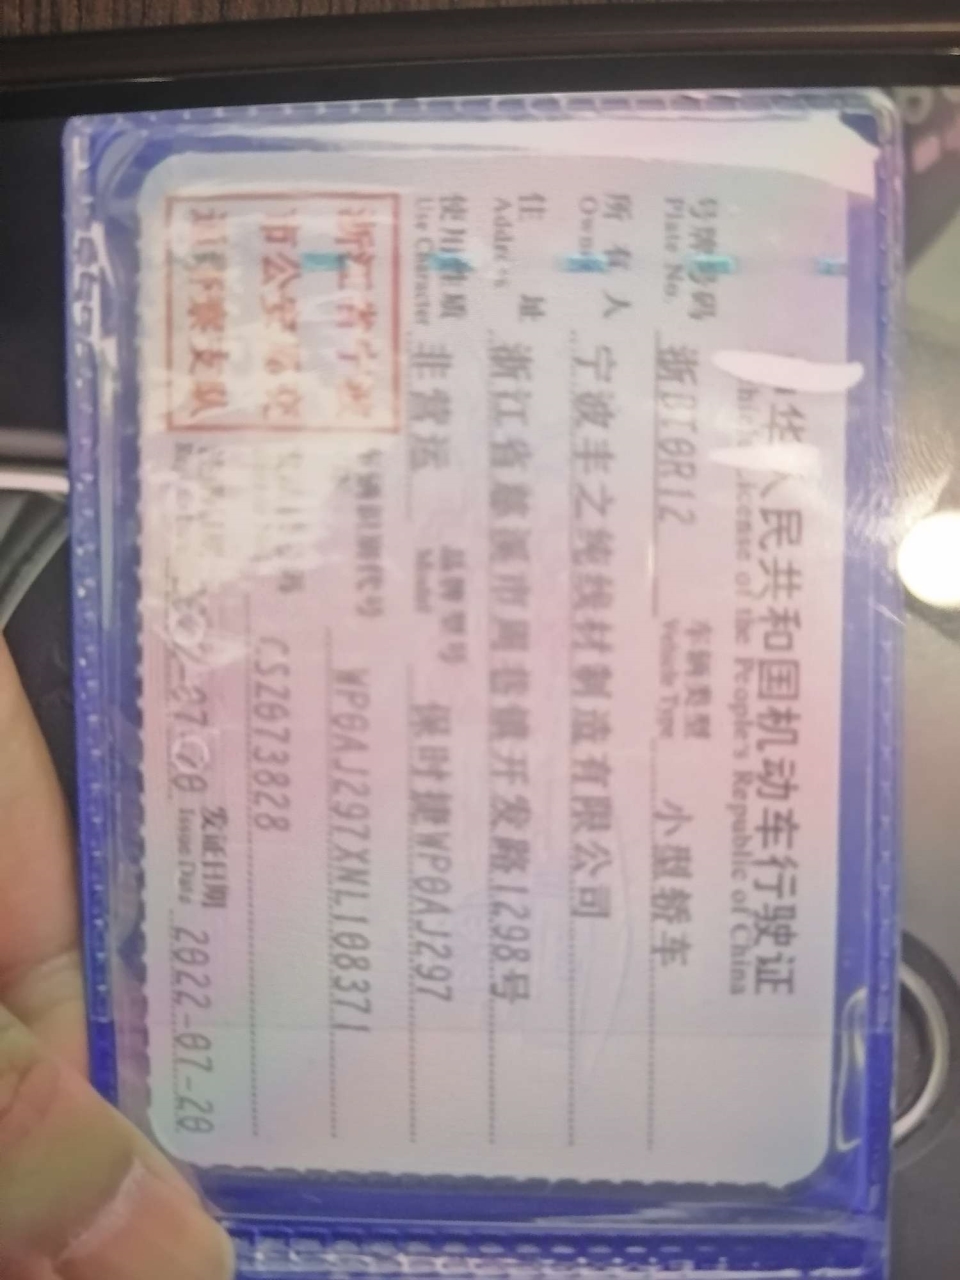 中华人民共和国机动车行驶证
Vehicle License of the People's Republic of China
号牌号码 浙BI0R12 车辆类型 小型轿车
Plate No. Vehicle Type
所有人 宁波丰之纯线材制造有限公司
Owner
住址 浙江省慈溪市周巷镇开发路1298号
Address
使用性质 非营运 品牌型号 保时捷WP0AJ297
Use Character Model
浙江省宁波 车辆识别代号 WP0AJ297XNL108371
市公安局交 CS2073828
通警察支队 07-20 发证日期 2022-07-20
Issue Date